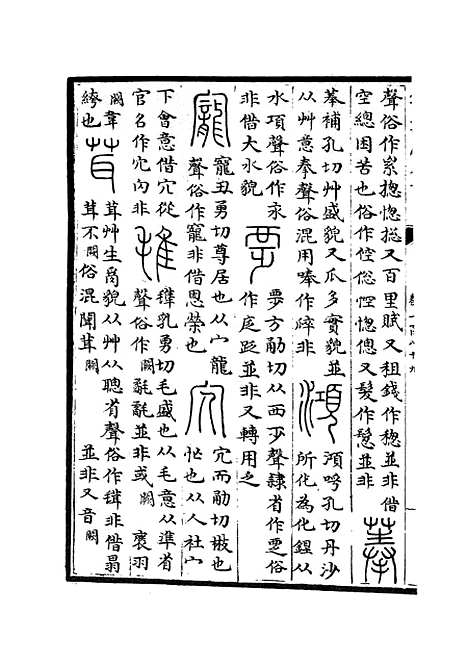 聲俗作䋆揔惚摠又百里賦又租錢作稯並非借
空總困苦也俗作倥偬悾惚傯又髮作鬆並非
菶
菶補孔切艸盛貌又瓜多實貌並
从艸意奉聲俗混用唪作非
澒
澒呼孔切丹沙
所化為化鋥从
水項聲俗作汞
非借大水貌
覂
覂方勈切从西乏聲隸省作覂俗
作並非又轉用乏
寵
寵丑勇切尊居也从宀龍
聲俗作竉非借恩榮也
宂
宂而勈切㪚也
也从人社宀
下會意借宂從
官名作宂內非
𣯍乳勇切毛盛也从毛意从隼省
聲俗作闕氄毧並非或闕褒羽
闕韋
也
茸
茸艸生貌从艸从聰省聲俗作非借
茸不闕俗混闒茸闕並非又音闕